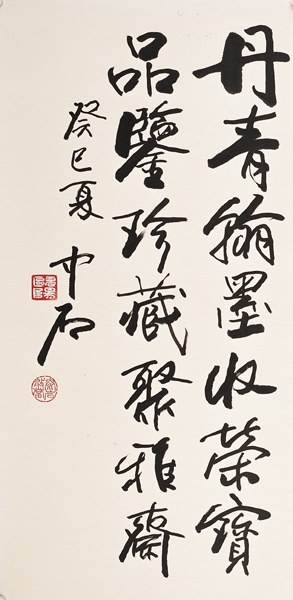 丹青翰墨收榮寶
品鑒珍藏聚雅齋
癸巳夏 中石